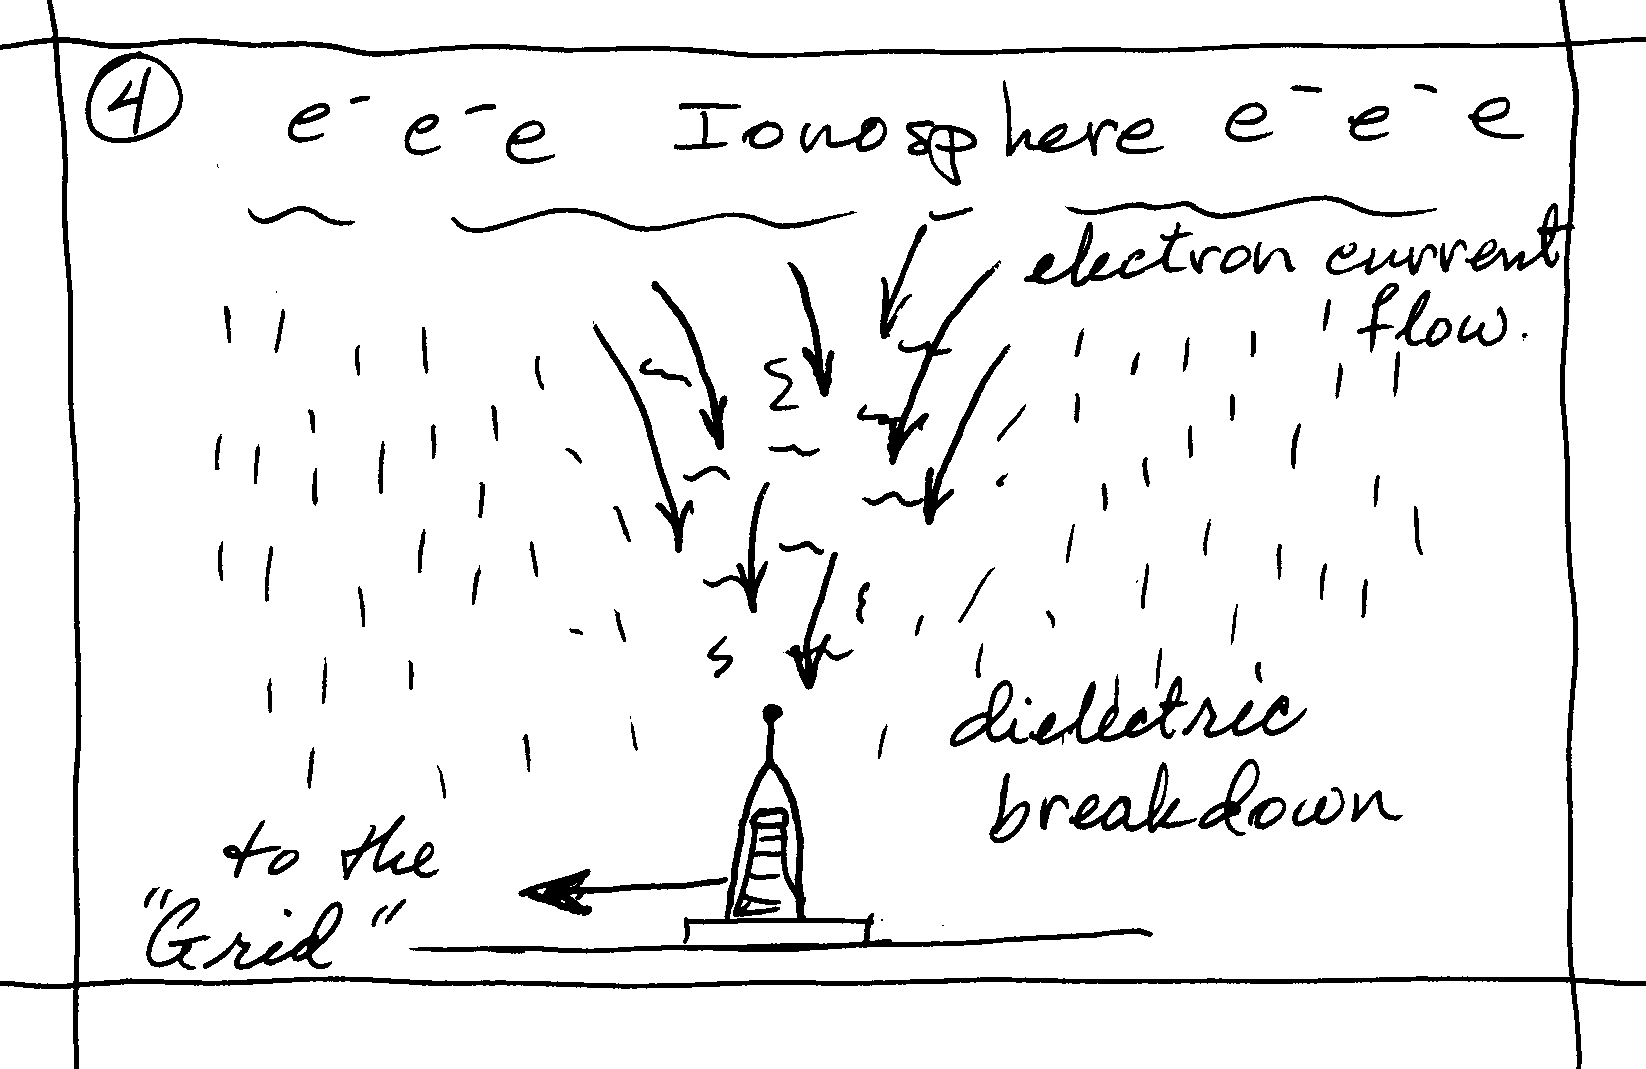 4
e⁻ e⁻ e Ionosphere e⁻ e⁻ e
electron current
flow.
dielectric
breakdown
to the
"Grid"